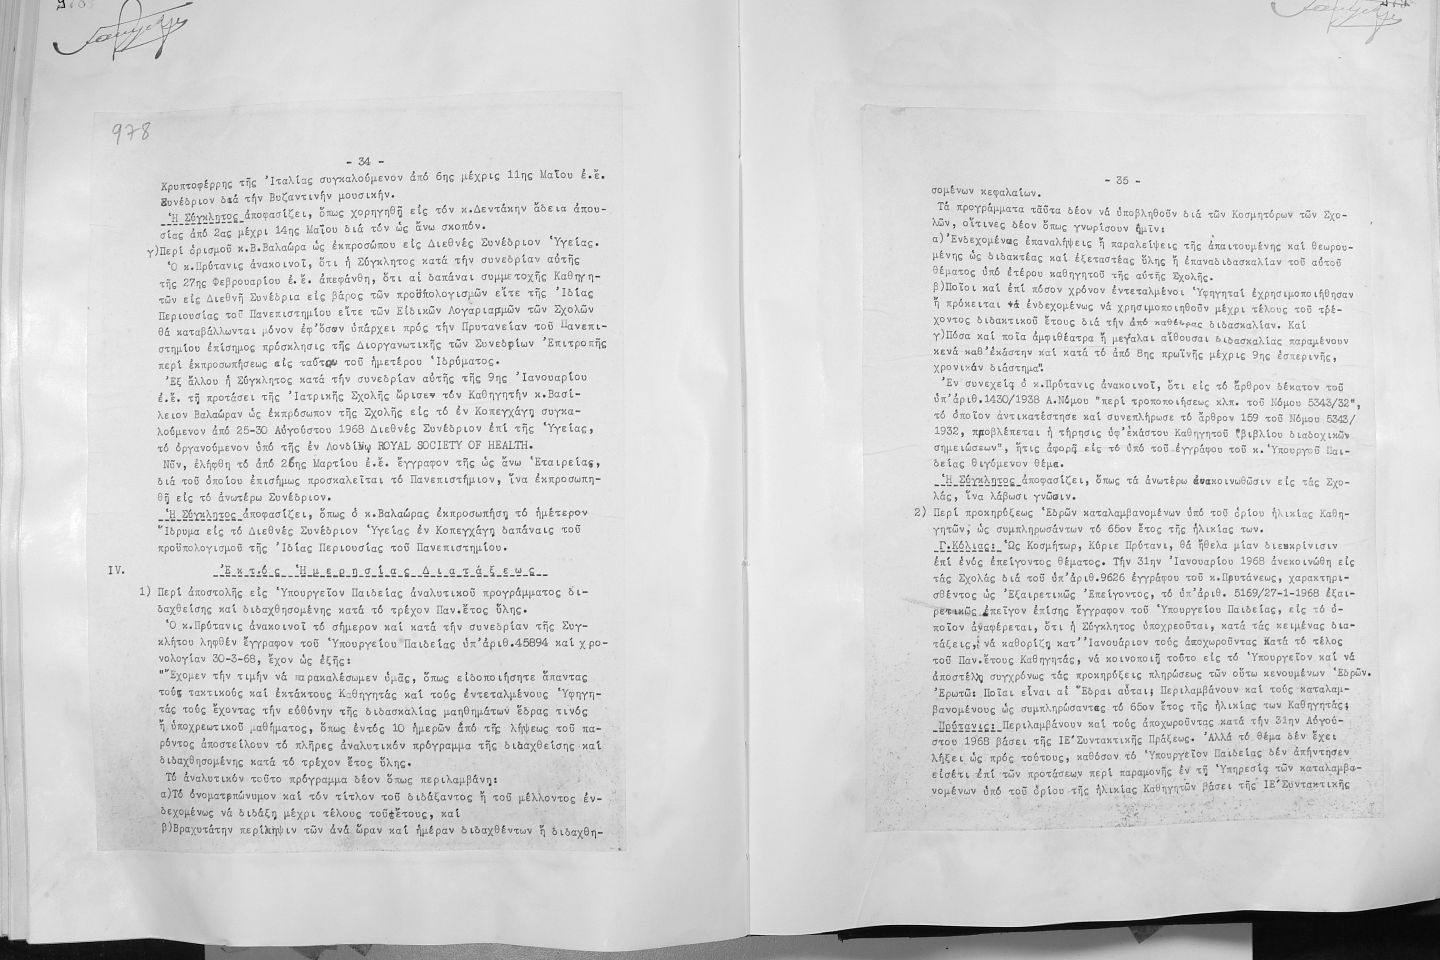 978
- 34 -
Κρυπτοφέρρης τῆς Ἰταλίας συγκαλούμενον ἀπό 6ης μέχρις 11ης Μαΐου ἐ.ἔ.
Συνέδριον διά τήν Βυζαντινήν μουσικήν.
Ἡ Σύγκλητος ἀποφασίζει, ὅπως χορηγηθῇ εἰς τόν κ.Δεντάκην ἄδεια ἀπου-
σίας ἀπό 2ας μέχρι 14ης Μαΐου διά τόν ὡς ἄνω σκοπόν.
γ)Περί ὁρισμοῦ κ.Β.Βαλαώρα ὡς ἐκπροσώπου εἰς Διεθνές Συνέδριον Ὑγείας.
Ὁ κ.Πρύτανις ἀνακοινοῖ, ὅτι ἡ Σύγκλητος κατά τήν συνεδρίαν αὐτῆς
τῆς 27ης Φεβρουαρίου ἐ.ἔ. ἀπεφάνθη, ὅτι αἱ δαπάναι συμμετοχῆς Καθηγη-
τῶν εἰς Διεθνῆ Συνέδρια εἰς βάρος τῶν προϋπολογισμῶν εἴτε τῆς Ἰδίας
Περιουσίας τοῦ Πανεπιστημίου εἴτε τῶν Εἰδικῶν Λογαριασμῶν τῶν Σχολῶν
θά καταβάλλωνται μόνον ἐφ'ὅσον ὑπάρχει πρός τήν Πρυτανείαν τοῦ Πανεπι-
στημίου ἐπίσημος πρόσκλησις τῆς Διοργανωτικῆς τῶν Συνεδρίων Ἐπιτροπῆς
περί ἐκπροσωπήσεως εἰς ταῦτα τοῦ ἡμετέρου Ἱδρύματος.
Ἐξ ἄλλου ἡ Σύγκλητος κατά τήν συνεδρίαν αὐτῆς τῆς 9ης Ἰανουαρίου
ἐ.ἔ. τῇ προτάσει τῆς Ἰατρικῆς Σχολῆς ὥρισεν τόν Καθηγητήν κ.Βασί-
λειον Βαλαώραν ὡς ἐκπρόσωπον τῆς Σχολῆς εἰς τό ἐν Κοπεγχάγῃ συγκα-
λούμενον ἀπό 25-30 Αὐγούστου 1968 Διεθνές Συνέδριον ἐπί τῆς Ὑγείας,
τό ὀργανούμενον ὑπό τῆς ἐν Λονδίνῳ ROYAL SOCIETY OF HEALTH.
Νῦν, ἐλήφθη τό ἀπό 26ης Μαρτίου ἐ.ἔ. ἔγγραφον τῆς ὡς ἄνω Ἑταιρείας,
διά τοῦ ὁποίου ἐπισήμως προσκαλεῖται τό Πανεπιστήμιον, ἵνα ἐκπροσωπη-
θῇ εἰς τό ἀνωτέρω Συνέδριον.
Ἡ Σύγκλητος ἀποφασίζει, ὅπως ὁ κ.Βαλαώρας ἐκπροσωπήσῃ τό ἡμέτερον
Ἵδρυμα εἰς τό Διεθνές Συνέδριον Ὑγείας ἐν Κοπεγχάγῃ δαπάναις τοῦ
προϋπολογισμοῦ τῆς Ἰδίας Περιουσίας τοῦ Πανεπιστημίου.
IV. Ἐκτός Ἡμερησίας Διατάξεως
1) Περί ἀποστολῆς εἰς Ὑπουργεῖον Παιδείας ἀναλυτικοῦ προγράμματος δι-
δαχθείσης καί διδαχθησομένης κατά τό τρέχον Παν.ἔτος ὕλης.
Ὁ κ.Πρύτανις ἀνακοινοῖ τό σήμερον καί κατά τήν συνεδρίαν τῆς Συγ-
κλήτου ληφθέν ἔγγραφον τοῦ Ὑπουργείου Παιδείας ὑπ'ἀριθ.45894 καί χρο-
νολογίαν 30-3-68, ἔχον ὡς ἑξῆς:
"Ἔχομεν τήν τιμήν νά παρακαλέσωμεν ὑμᾶς, ὅπως εἰδοποιήσητε ἅπαντας
τούς τακτικούς καί ἐκτάκτους Καθηγητάς καί τούς ἐντεταλμένους Ὑφηγη-
τάς τούς ἔχοντας τήν εὐθύνην τῆς διδασκαλίας μαηθημάτων ἕδρας τινός
ἤ ὑποχρεωτικοῦ μαθήματος, ὅπως ἐντός 10 ἡμερῶν ἀπό τῆς λήψεως τοῦ πα-
ρόντος ἀποστείλουν τό πλῆρες ἀναλυτικόν πρόγραμμα τῆς διδαχθείσης καί
διδαχθησομένης κατά τό τρέχον ἔτος ὕλης.
Τό ἀναλυτικόν τοῦτο πρόγραμμα δέον ὅπως περιλαμβάνῃ:
α)Τό ὀνοματεπώνυμον καί τόν τίτλον τοῦ διδάξαντος ἤ τοῦ μέλλοντος ἐν-
δεχομένως νά διδάξῃ μέχρι τέλους τοῦ ἔτους, καί
β)Βραχυτάτην περίληψιν τῶν ἀνά ὥραν καί ἡμέραν διδαχθέντων ἤ διδαχθη-
- 35 -
σομένων κεφαλαίων.
Τά προγράμματα ταῦτα δέον νά ὑποβληθοῦν διά τῶν Κοσμητόρων τῶν Σχο-
λῶν, οἵτινες δέον ὅπως γνωρίσουν ἡμῖν:
α)Ἐνδεχομένας ἐπαναλήψεις ἤ παραλείψεις τῆς ἀπαιτουμένης καί θεωρου-
μένης ὡς διδακτέας καί ἐξεταστέας ὕλης ἤ ἐπαναδιδασκαλίαν τοῦ αὐτοῦ
θέματος ὑπό ἑτέρου καθηγητοῦ τῆς αὐτῆς Σχολῆς.
β)Ποῖοι καί ἐπί πόσον χρόνον ἐντεταλμένοι Ὑφηγηταί ἐχρησιμοποιήθησαν
ἤ πρόκειται νά ἐνδεχομένως νά χρησιμοποιηθοῦν μέχρι τέλους τοῦ τρέ-
χοντος διδακτικοῦ ἔτους διά τήν ἀπό καθέδρας διδασκαλίαν. Καί
γ)Πόσα καί ποῖα ἀμφιθέατρα ἤ μεγάλαι αἴθουσαι διδασκαλίας παραμένουν
κενά καθ'ἑκάστην καί κατά τό ἀπό 8ης πρωϊνῆς μέχρις 9ης ἑσπερινῆς,
χρονικόν διάστημα".
Ἐν συνεχείᾳ ὁ κ.Πρύτανις ἀνακοινοῖ, ὅτι εἰς τό ἄρθρον δέκατον τοῦ
ὑπ'ἀριθ.1430/1938 Α.Νόμου "περί τροποποιήσεως κλπ. τοῦ Νόμου 5343/32",
τό ὁποῖον ἀντικατέστησε καί συνεπλήρωσε τό ἄρθρον 159 τοῦ Νόμου 5343/
1932, προβλέπεται ἡ τήρησις ὑφ'ἑκάστου Καθηγητοῦ "βιβλίου διαδοχικῶν
σημειώσεων", ἥτις ἀφορᾷ εἰς τό ὑπό τοῦ ἐγγράφου τοῦ κ.Ὑπουργοῦ Παι-
δείας θιγόμενον θέμα.
Ἡ Σύγκλητος ἀποφασίζει, ὅπως τά ἀνωτέρω ἀνακοινωθῶσιν εἰς τάς Σχο-
λάς, ἵνα λάβωσι γνῶσιν.
2) Περί προκηρύξεως Ἑδρῶν καταλαμβανομένων ὑπό τοῦ ὁρίου ἡλικίας Καθη-
γητῶν, ὡς συμπληρωσάντων τό 65ον ἔτος τῆς ἡλικίας των.
Γ.Κόλιας: Ὡς Κοσμήτωρ, Κύριε Πρύτανι, θά ἤθελα μίαν διευκρίνισιν
ἐπί ἑνός ἐπείγοντος θέματος. Τήν 31ην Ἰανουαρίου 1968 ἀνεκοινώθη εἰς
τάς Σχολάς διά τοῦ ὑπ'ἀριθ.9626 ἐγγράφου τοῦ κ.Πρυτάνεως, χαρακτηρι-
σθέντος ὡς Ἐξαιρετικῶς Ἐπείγοντος, τό ὑπ'ἀριθ. 5169/27-1-1968 ἐξαι-
ρετικῶς ἐπεῖγον ἐπίσης ἔγγραφον τοῦ Ὑπουργείου Παιδείας, εἰς τό ὁ-
ποῖον ἀναφέρεται, ὅτι ἡ Σύγκλητος ὑποχρεοῦται, κατά τάς κειμένας δια-
τάξεις, νά καθορίζῃ κατ' Ἰανουάριον τούς ἀποχωροῦντας κατά τό τέλος
τοῦ Παν.ἔτους Καθηγητάς, νά κοινοποιῇ τοῦτο εἰς τό Ὑπουργεῖον καί νά
ἀποστέλῃ συγχρόνως τάς προκηρύξεις πληρώσεως τῶν οὕτω κενουμένων Ἑδρῶν.
Ἐρωτῶ: Ποῖαι εἶναι αἱ Ἕδραι αὗται; Περιλαμβάνουν καί τούς καταλαμ-
βανομένους ὡς συμπληρώσαντας τό 65ον ἔτος τῆς ἡλικίας των Καθηγητάς;
Πρύτανις: Περιλαμβάνουν καί τούς ἀποχωροῦντας κατά τήν 31ην Αὐγού-
στου 1968 βάσει τῆς ΙΕ'Συντακτικῆς Πράξεως. Ἀλλά τό θέμα δέν ἔχει
λήξει ὡς πρός τούτους, καθόσον τό Ὑπουργεῖον Παιδείας δέν ἀπήντησεν
εἰσέτι ἐπί τῶν προτάσεων περί παραμονῆς ἐν τῇ Ὑπηρεσίᾳ τῶν καταλαμβα-
νομένων ὑπό τοῦ ὁρίου τῆς ἡλικίας Καθηγητῶν βάσει τῆς ΙΕ'Συντακτικῆς